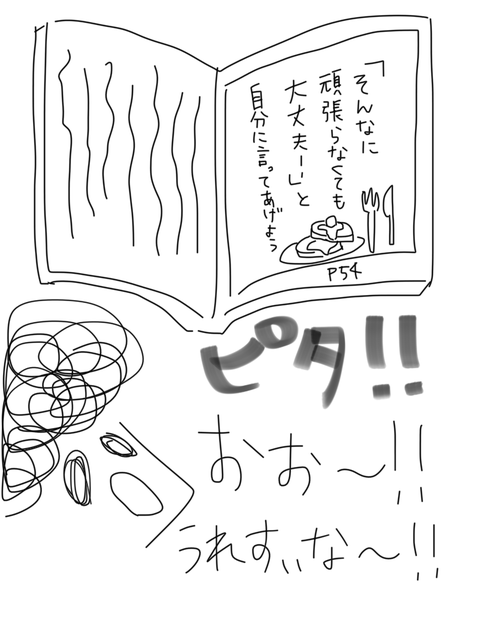 「そんなに
頑張らなくても
大丈夫!」と
自分に言ってあげよう
P54
ピタ!!
おお〜!!
うれすぃな〜!!